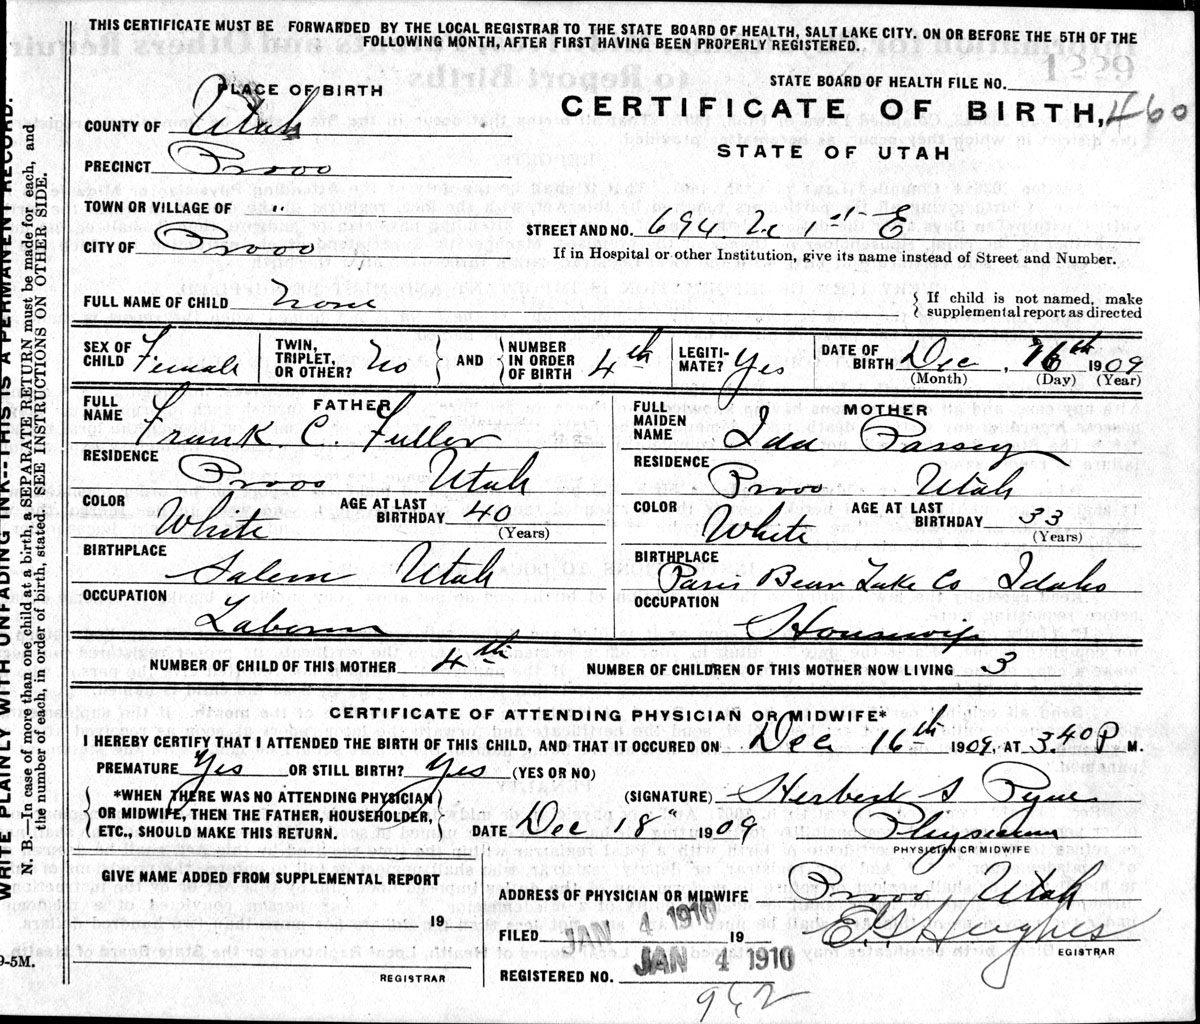 THIS CERTIFICATE MUST BE FORWARDED BY THE LOCAL REGISTRAR TO THE STATE BOARD OF HEALTH, SALT LAKE CITY. ON OR BEFORE THE 5TH OF THE
FOLLOWING MONTH, AFTER FIRST HAVING BEEN PROPERLY REGISTERED.
1229
STATE BOARD OF HEALTH FILE NO.
PLACE OF BIRTH
CERTIFICATE OF BIRTH, 460
STATE OF UTAH
COUNTY OF Utah
PRECINCT Provo
TOWN OR VILLAGE OF "
STREET AND NO. 694 2 E
CITY OF Provo
If in Hospital or other Institution, give its name instead of Street and Number.
FULL NAME OF CHILD None
{ If child is not named, make
supplemental report as directed
SEX OF CHILD Female
TWIN, TRIPLET, OR OTHER? No } AND { NUMBER IN ORDER OF BIRTH 4th
LEGITI-MATE? Yes
DATE OF BIRTH Dec, 16th 1909
(Month) (Day) (Year)
FATHER
FULL NAME Frank C. Fuller
RESIDENCE Provo Utah
COLOR White AGE AT LAST BIRTHDAY 40 (Years)
BIRTHPLACE Salem Utah
OCCUPATION Laborer
MOTHER
FULL MAIDEN NAME Ida Passey
RESIDENCE Provo Utah
COLOR White AGE AT LAST BIRTHDAY 33 (Years)
BIRTHPLACE Paris Bear Lake Co Idaho
OCCUPATION Housewife
NUMBER OF CHILD OF THIS MOTHER 4th NUMBER OF CHILDREN OF THIS MOTHER NOW LIVING 3
CERTIFICATE OF ATTENDING PHYSICIAN OR MIDWIFE*
I HEREBY CERTIFY THAT I ATTENDED THE BIRTH OF THIS CHILD, AND THAT IT OCCURED ON Dec 16th 1909, AT 3.40 P M.
PREMATURE Yes OR STILL BIRTH? Yes (YES OR NO)
{ *WHEN THERE WAS NO ATTENDING PHYSICIAN
OR MIDWIFE, THEN THE FATHER, HOUSEHOLDER,
ETC., SHOULD MAKE THIS RETURN. }
(SIGNATURE) Herbert S Pyne
DATE Dec 18 1909 Physician
PHYSICIAN OR MIDWIFE
GIVE NAME ADDED FROM SUPPLEMENTAL REPORT
19
REGISTRAR
ADDRESS OF PHYSICIAN OR MIDWIFE Provo Utah
FILED JAN 4 1910 19 E. G. Hughes
EGISTRAR
REGISTERED NO. JAN 4 1910
942
WRITE PLAINLY WITH UNFADING INK--THIS IS A PERMANENT RECORD.
N. B.—In case of more than one child at a birth, a SEPARATE RETURN must be made for each, and
the number of each, in order of birth, stated. SEE INSTRUCTIONS ON OTHER SIDE.
9-5M.